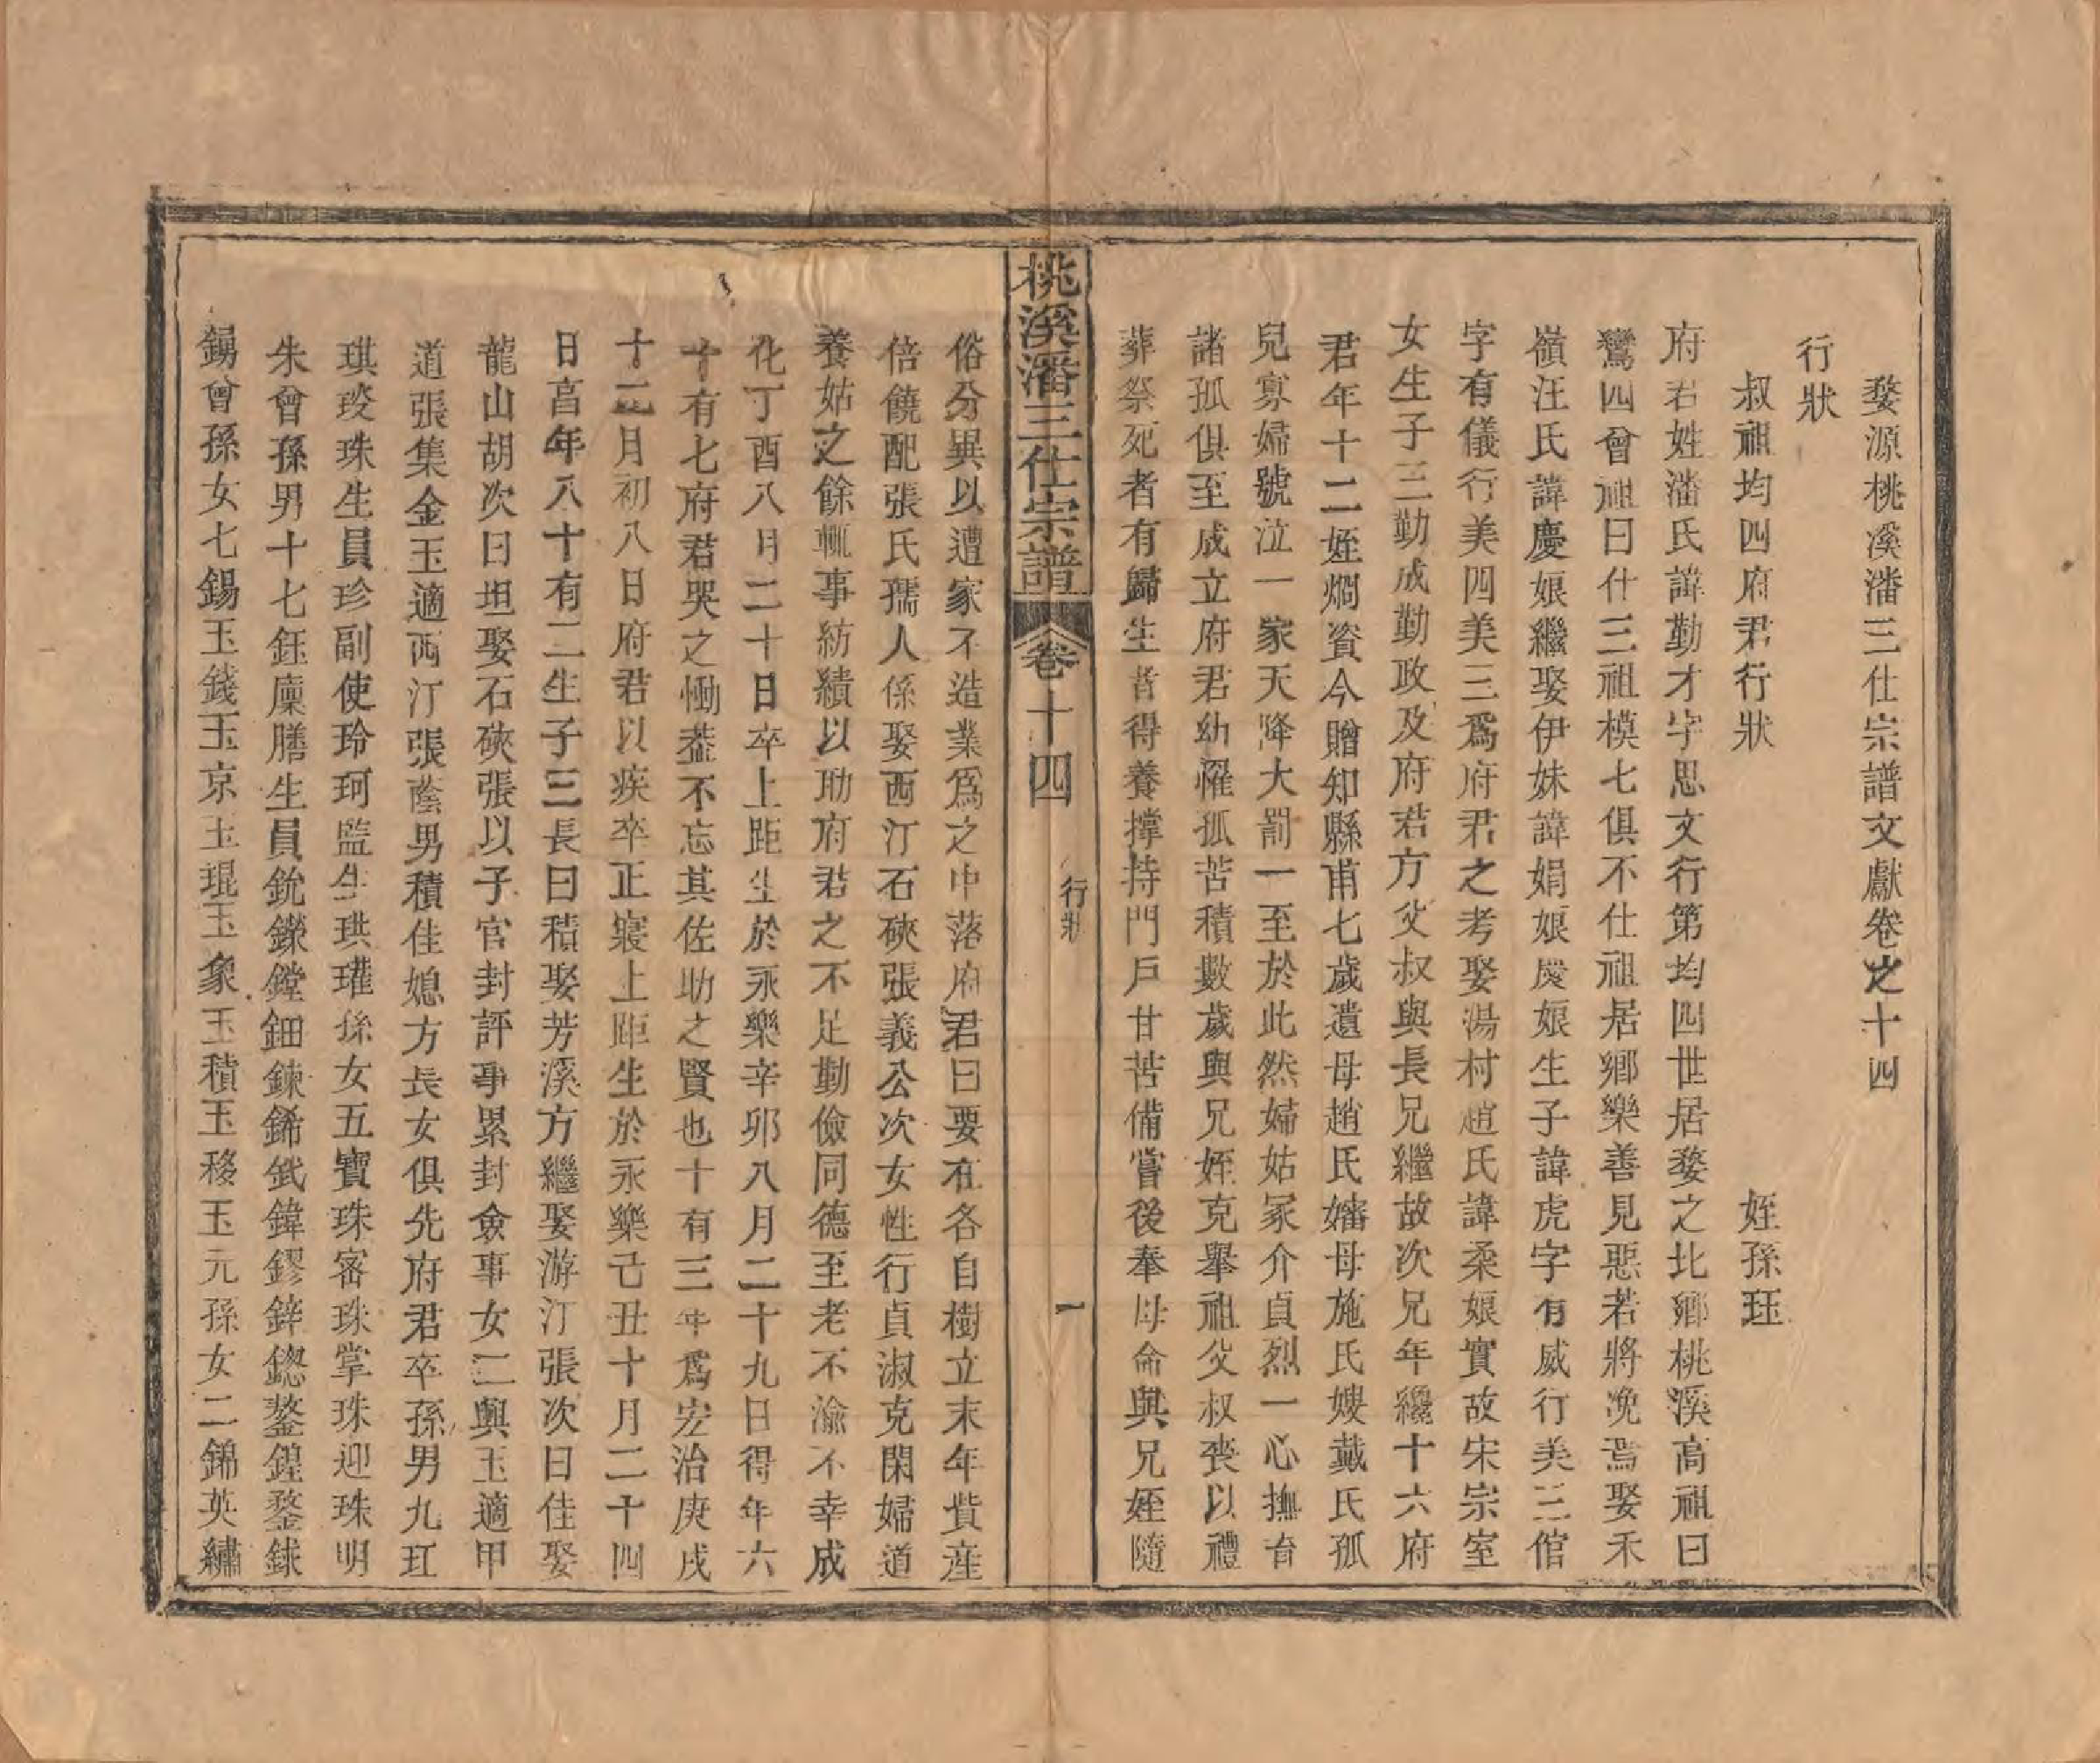 婺源桃溪潘三仕宗譜文獻卷之十四
行狀
叔祖均四府君行狀　姪孫珏
府君姓潘氏諱勤才字思文行第均四世居婺之北鄉桃溪高祖曰
鸞四曾祖曰仕三祖模七俱不仕祖居鄉樂善見惡若將凂焉娶禾
嶺汪氏諱慶娘繼娶伊妹諱娟娘慶娘生子諱虎字有威行美三倌
字有儀行美四美三爲府君之考娶湯村趙氏諱柔娘實故宋宗室
女生子三勤成勤政及府君方父叔與長兄繼故次兄年纔十六府
君年十二姪燗資今贈知縣甫七歲遺母趙氏嬸母施氏嫂戴氏孤
兒寡婦號泣一家天降大罰一至於此然婦姑冢介貞烈一心撫育
諸孤俱至成立府君幼罹孤苦積數歲與兄姪克舉祖父叔喪以禮
葬祭死者有歸生者得養撐持門戶甘苦備嘗後奉母命與兄姪隨
桃溪潘三仕宗譜　卷十四　行狀　一
俗分異以遭家不造業爲之中落府君曰要在各自樹立末年貲産
倍饒配張氏孺人係娶西汀石硤張義公次女性行貞淑克閑婦道
養姑之餘輒事紡績以助府君之不足勤儉同德至老不渝不幸成
化丁酉八月二十日卒上距生於永樂辛卯八月二十九日得年六
十有七府君哭之慟葢不忘其佐助之賢也十有三年爲宏治庚戌
十二月初八日府君以疾卒正寢上距生於永樂己丑十月二十四
日亯年八十有二生子三長曰積娶芳溪方繼娶游汀張次曰佳娶
龍山胡次曰坦娶石硤張以子官封評事累封僉事女二輿玉適甲
道張集金玉適西汀張蔭男積佳媳方長女俱先府君卒孫男九玒
琪琰珠生員珍副使玲珂監生珙瓘孫女五寶珠密珠掌珠迎珠明
朱曾孫男十七鈺廩膳生員銃鑅鏜鈿鍊鋿鉽鍏鏐鋅鍯鏊鍠鍪銶
鍚曾孫女七錫玉錢玉京玉琨玉象玉積玉移玉元孫女二錦英繡